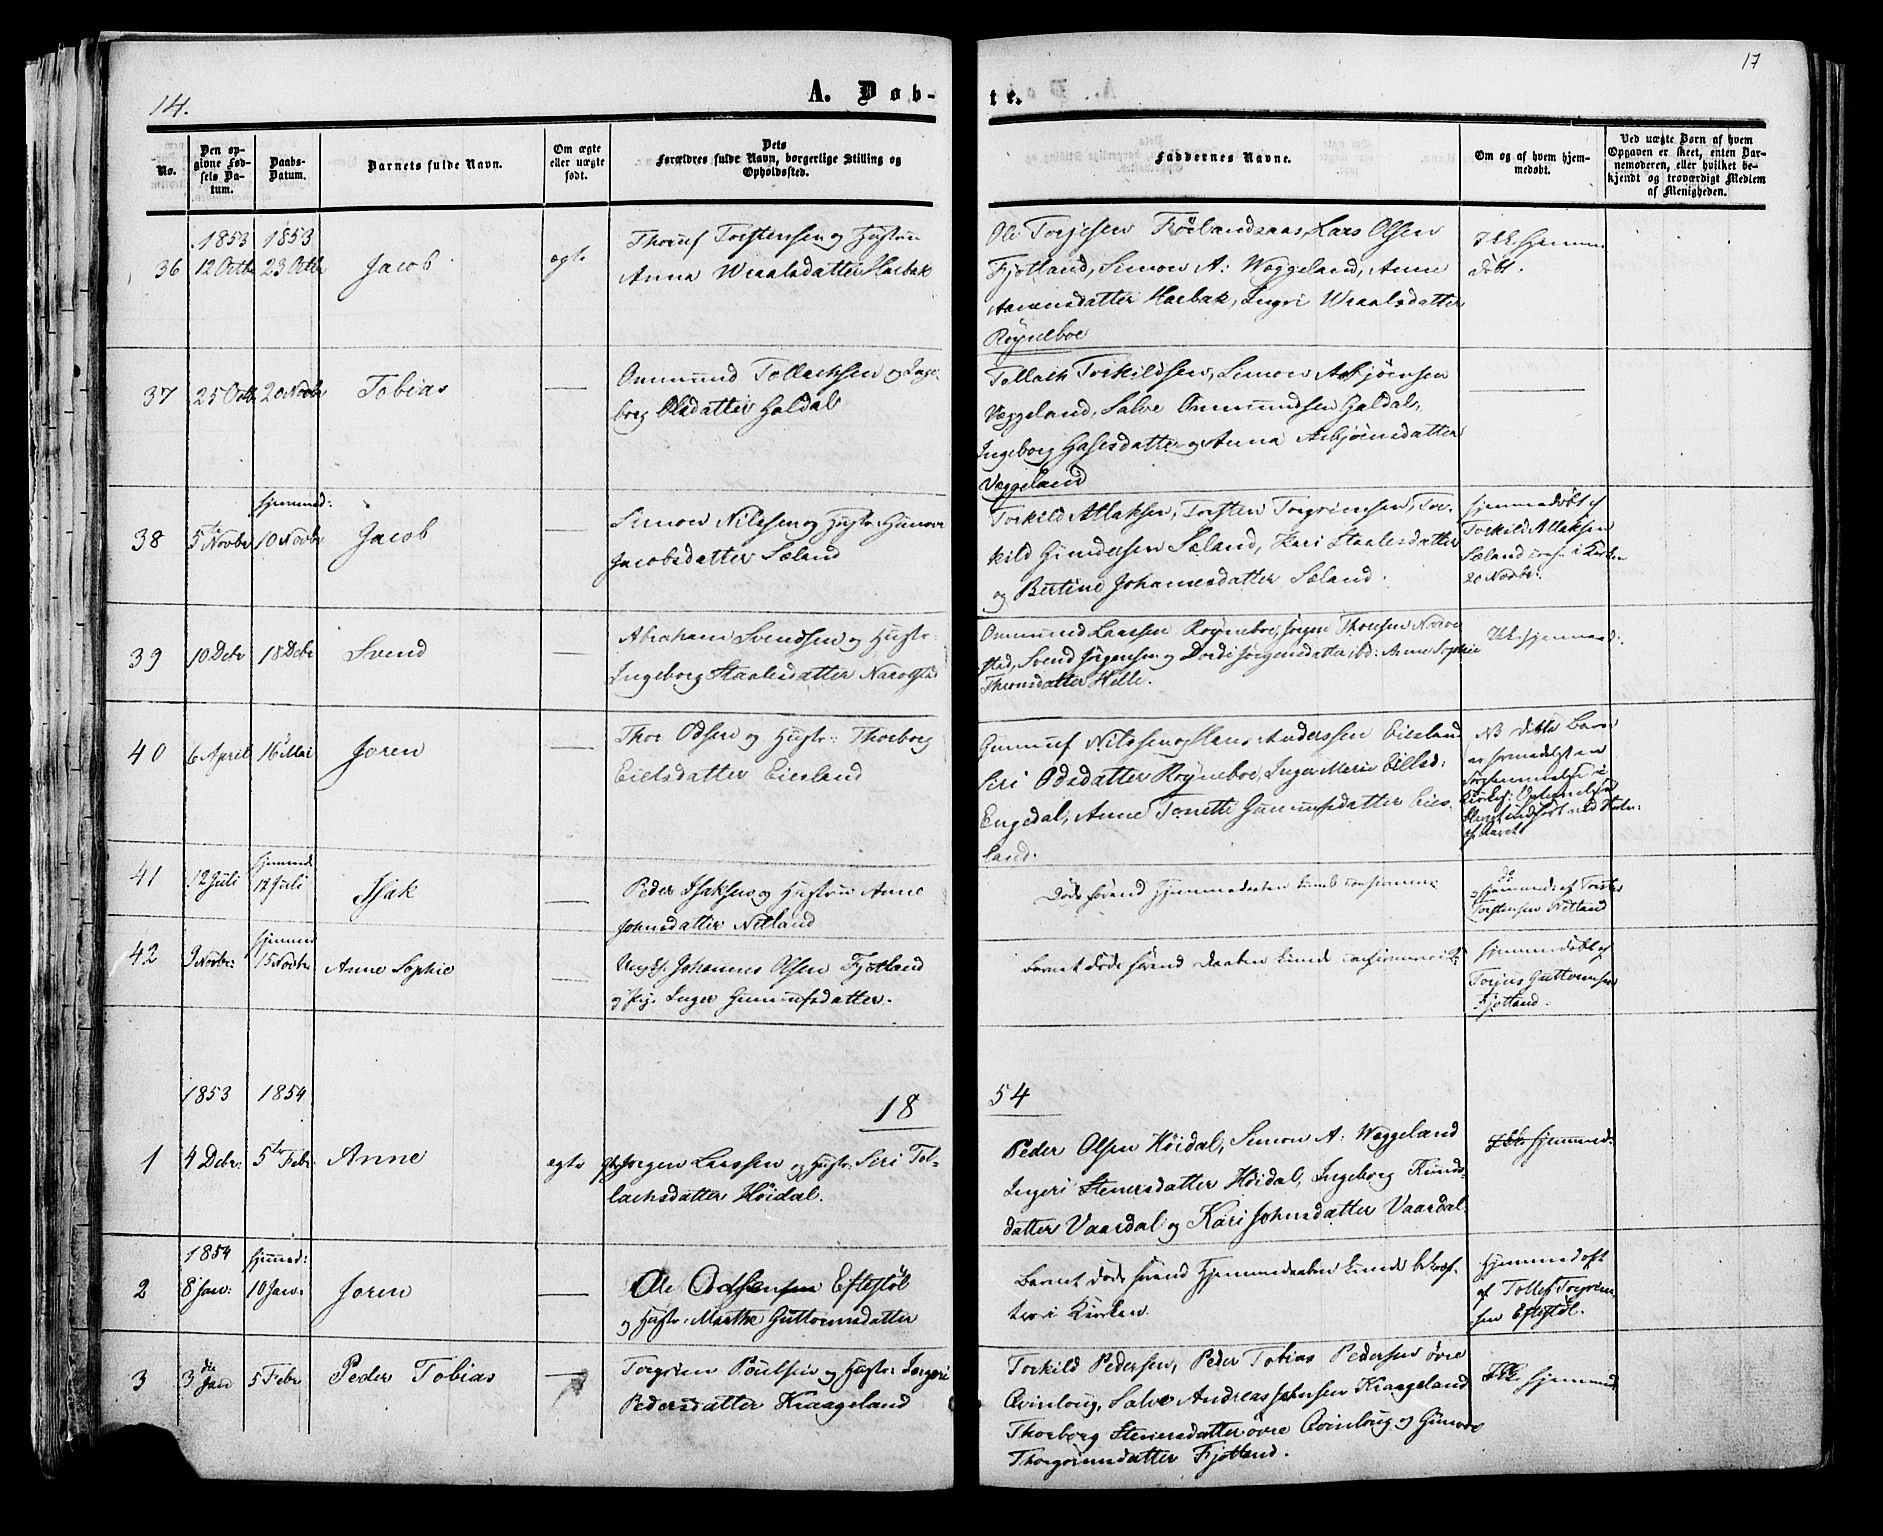 14.
A. Døb-
te.
17
No.
Den op-
givne Fød-
sels Da-
tum.
Daabs-
Datum.
Barnets fulde Navn.
Om ægte
eller uægte
født.
Dets
Forældres fulde Navn, borgerlige Stilling og
Opholdssted.
Faddernes Navne.
Om og af hvem hjem-
medøbt.
Ved uægte Børn af hvem
Opgaven er skeet, enten Bar-
nemoderen, eller hvilket be-
kjendt og troværdigt Medlem
af Menigheden.
1853 1853
36 12 Octb 23 Octb Jacob ægte
Thoruf Torstensen og Hustrue
Anna Wraalsdatter Harbak
Ole Torjesen Førlandsaas, Lars Olsen
Fjotland, Simon A: Wæggeland, Anne
Aanensdatter Harbak, Ingri Wraalsdatter
Røyneboe
Ikke hjemme
døbt.
37 25 Octb 20 Novbr Tobias —
Ommund Tollachsen og Inge-
borg Olsdatter Galdal
Tollach Torkildsen, Simon Asbjørnsen
Væggeland, Salve Ommundsen Galdal,
Ingeborg datter og Anna Asbjørnsdatter
Væggeland
—
38 5te Novbr hjemmed: 10 Novbr Jacob —
Simon Nilssen og Hustr: Gunvor
Jacobsdatter Sæland
Torkild Atlaksen, Torsten Torgrimsen, Tor-
kild Gundersen Sæland, Kari Staalesdatter
og Bertine Johannesdatter Sæland.
hjemmedøbt af
Torkild Atlaksen
Sæland conf. i Kirken
20 Novbr:
39 10 Debr 18 Debr Svend —
Abraham Svendsen og Hustr:
Ingeborg Staalesdatter Narvestad
Ommund Larssen Røyneboe, Jørgen Thorsen Narve-
stad, Svend Jørgensen og Dordi Jørgensdatter ibd: Anne Sophie
Theonsdatter Helle.
Ikke hjemmed:
40 6 April 16 Mai Joren —
Thor Odsen og Hustr: Thorborg
Eielsdatter Eiesland
Gunnuf Nilssen og Hans Anderssen Eiesland
Siri Odsdatter Røyneboe, Inger Marie Eilsd:
Engedal, Anne Tonette Gunnufsdatter Eies-
land.
NB dette Barn
er formedelst en
Forsømmelse i
41 12 Juli hjemmed 12 Juli Isak —
Peder Isaksen og Hustrue Anne
Johnsdatter Netland
Døde førend Hjemmedaaben kunde confirmeres
hjemmed: af Torsten
Torstensen Netland
42 9 Novbr: hjemmed 15 Novbr Anne Sophie —
Ungk. Johannes Olsen Fjotland
og Pig. Inger Gunnufsdatter.
Barnet døde førend Daaben kunde confirmeres i K:
hjemmedøbt af
Torjus Guttormsen
Fjotland.
1853 1854
18
54
1 4 Debr: 5te Febr: Anne ægte
Jørgen Larssen og Hustr: Siri Tol-
lachsdatter Høidal.
Peder Olsen Høidal, Simon A: Wæggeland
Ingeri Stenersdatter Høidal, Ingeborg Knuds-
datter Vaardal og Kari Johnsdatter Vaardal.
Ikke hjemmed:
1854 hjemmed:
2 8 Jan: 10 Jan: Joren —
Ole Eftestøl
og Hustr: Marthe Guttormsdatter
Barnet døde førend Hjemmedaaben kunde bekræf-
tes i Kirken.
Hjemmedøbt
af Tollef Torgrim-
sen Eftestøl.
3 3die Jan 5 Febr Peder Tobias —
Torgrim Poulsen og Hustr: Ingeri
Pedersdatter Kraageland
Torkild Pedersen, Peder Tobias Pedersen øvre
Qvinloug, Salve Andreas Johnsen Kraageland
Thorborg Stenersdatter øvre Qvinloug og Gunvor
Thorgrimsdatter Fjotland.
Ikke hjemmed